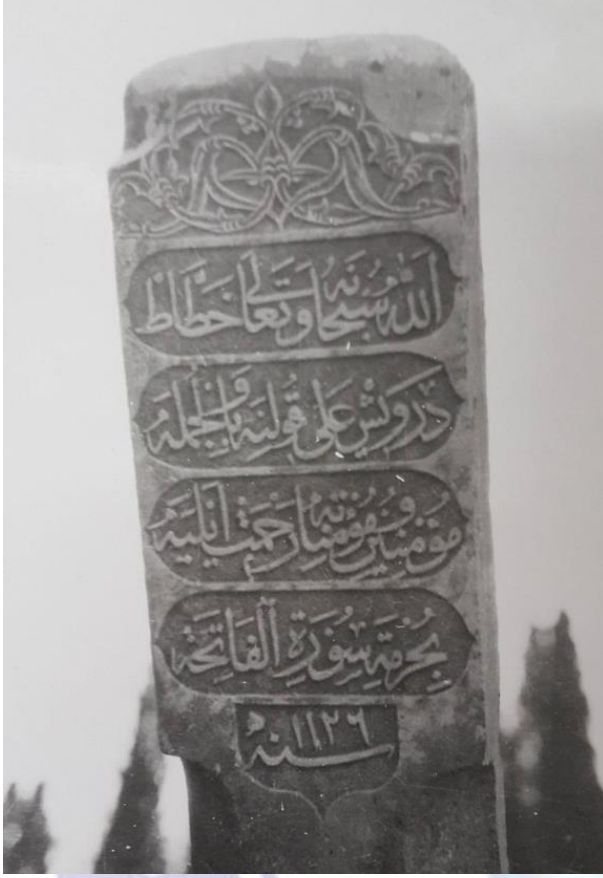 الله سُبحانه وتعالى خطاط
درويش على قولنه وبالجمله
مؤمنين ومؤمناته رحمت ايليه
بحرمة سورة الفاتحه
سنه ١١٢٦